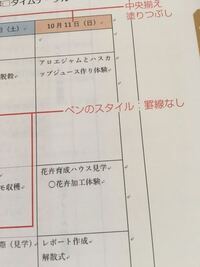 タイムテーブル
中央揃え
塗りつぶし
（土）
10月11日（日）
脱穀
アロエジャムとハスカ
ップジュース作り体験
ペンのスタイル：罫線なし
花卉育成ハウス見学
モ収穫
〇花卉加工体験
（見学）
レポート作成
解散式